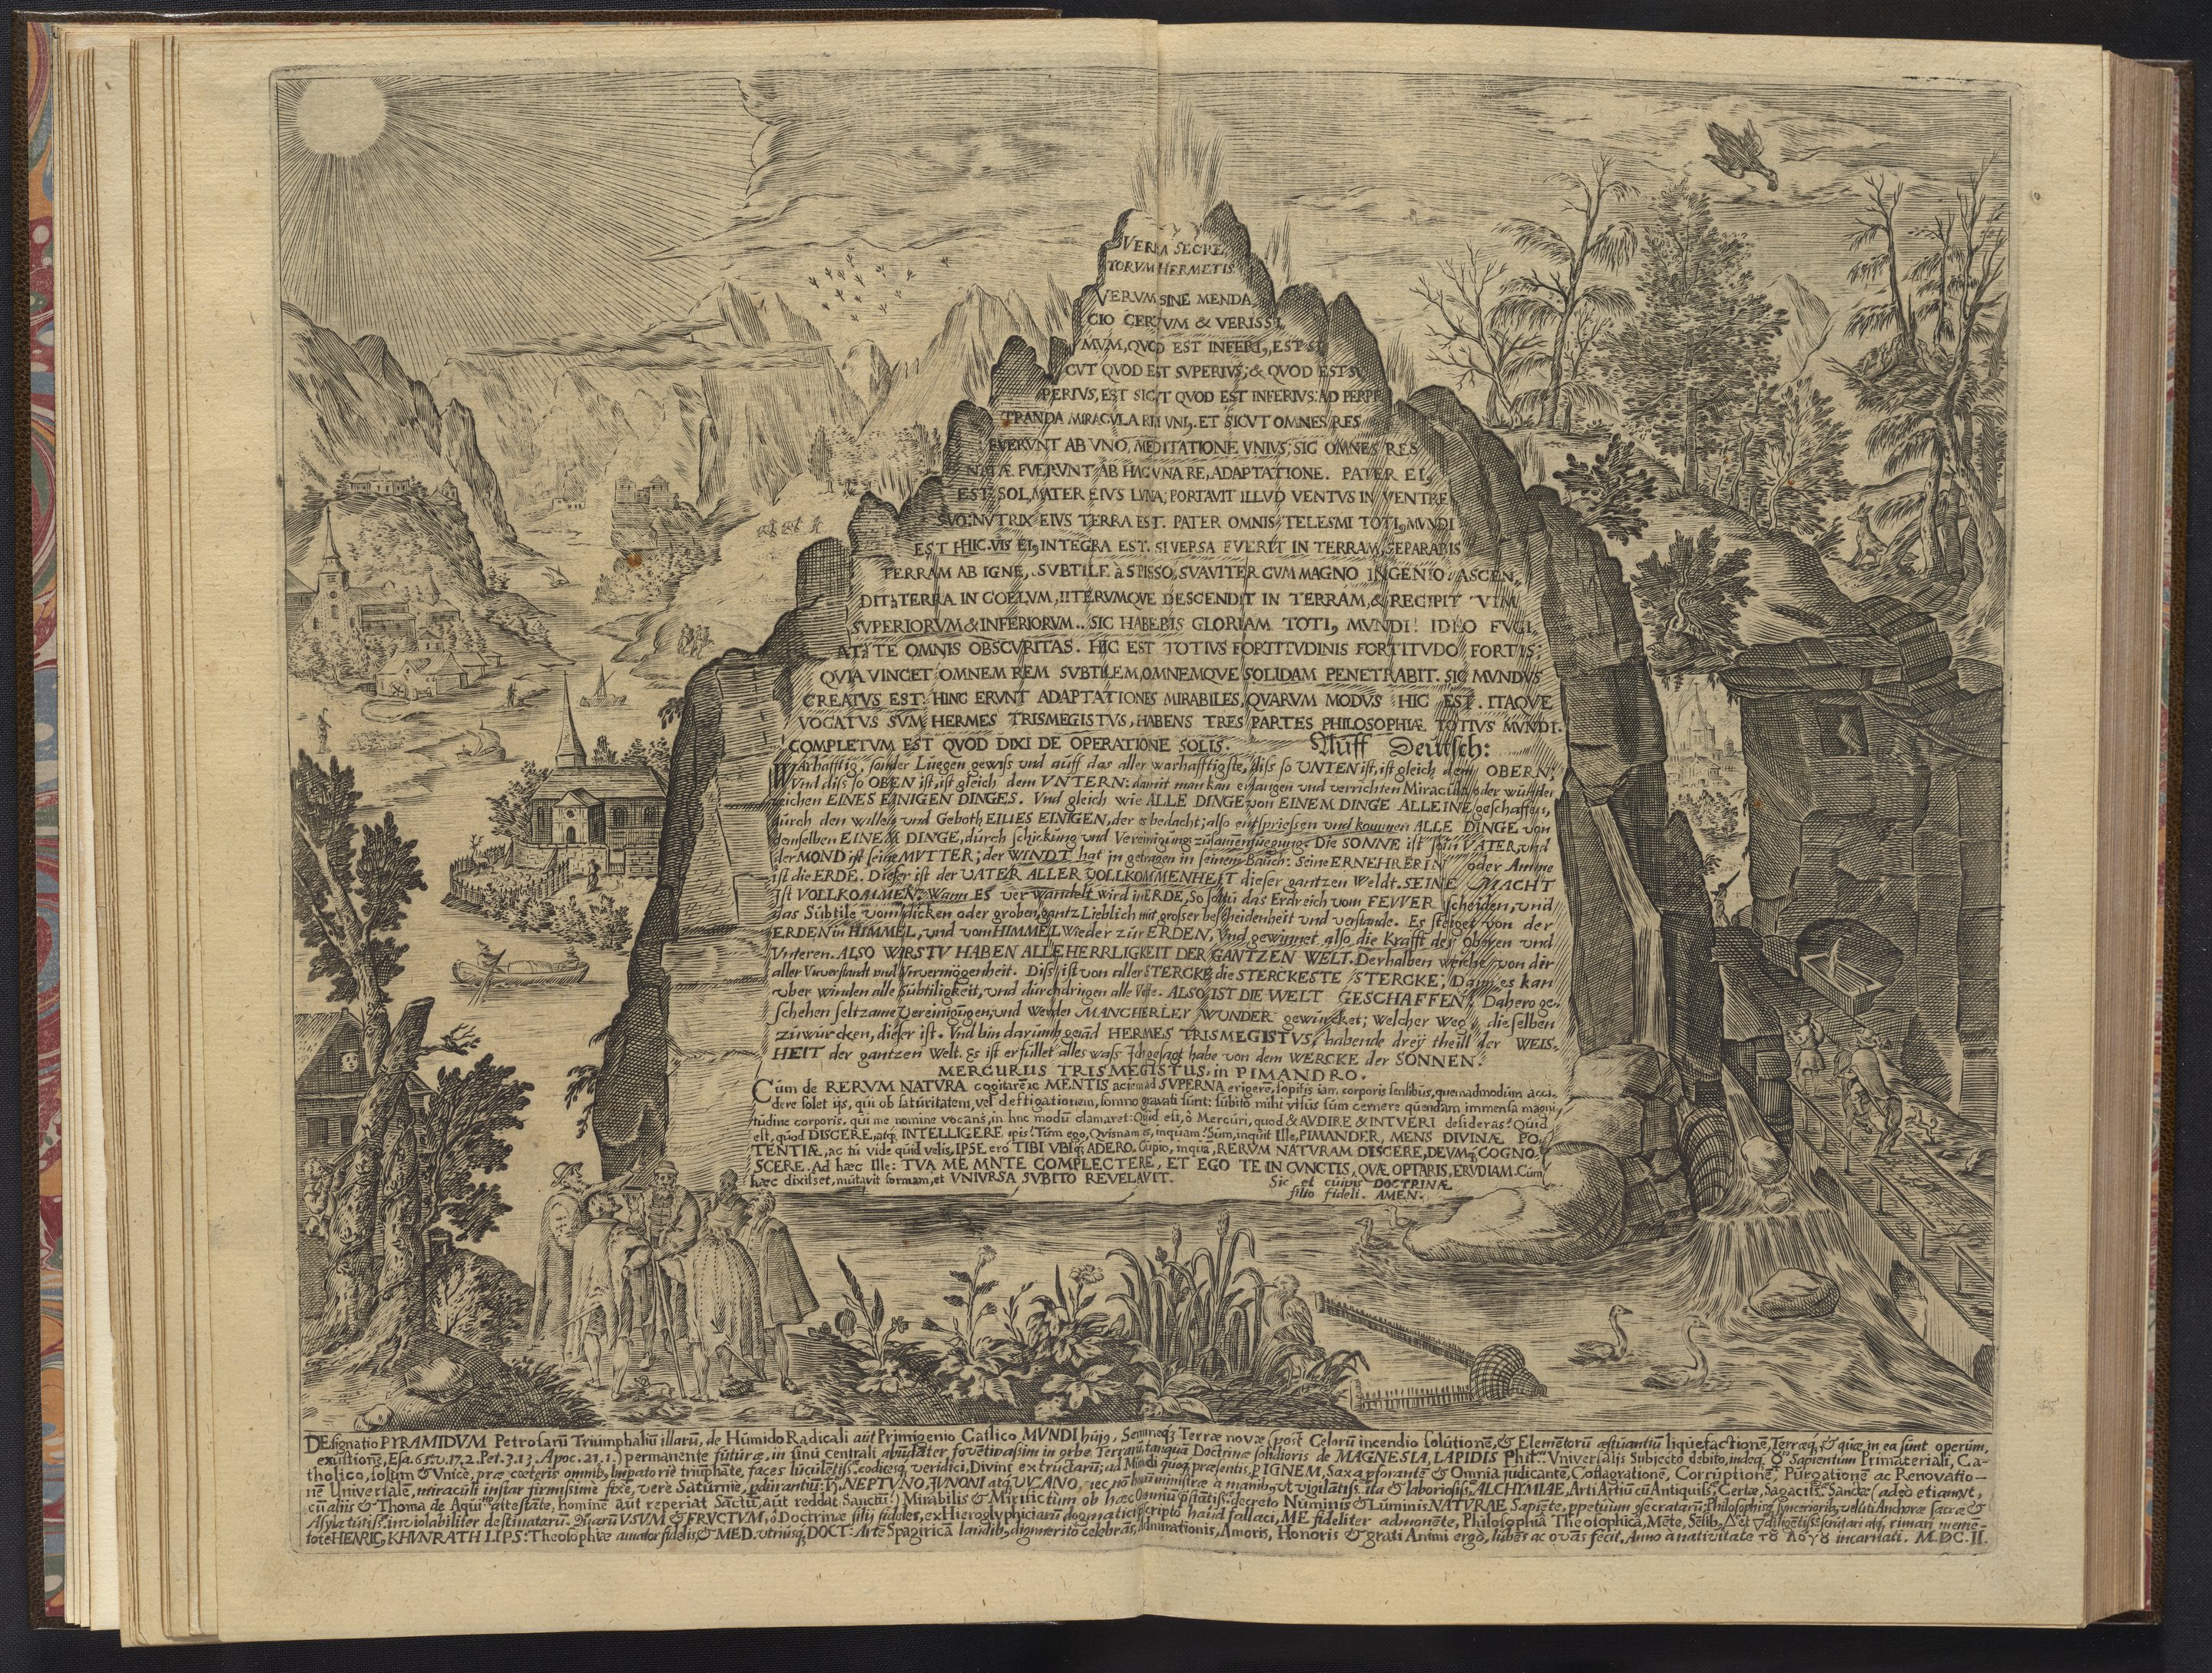 VERBA SECRE
TORVM HERMETIS
VERVM SINE MENDA
CIO CERTVM & VERISSI
MVM, QVOD EST INFERI, EST SI
CVT QVOD EST SVPERIVS; & QVOD EST S
PERIVS, EST SICVT QVOD EST INFERIVS: AD PERPE
TRANDA MIRACVLA REI VNI, . ET SICVT OMNES RES
FVERVNT AB VNO, MEDITATIONE VNIVS, SIC OMNES RES
NATÆ FVERVNT AB HAC VNA RE, ADAPTATIONE. PATER EI,
EST SOL, MATER EIVS LVNA; PORTAVIT ILLVD VENTVS IN VENTRE
SVO: NVTRIX EIVS TERRA EST. PATER OMNIS TELESMI TOTI, MVNDI
EST HIC. VIS EI, INTEGRA EST. SI VERSA FVERIT IN TERRAM, SEPARABIS
TERRAM AB IGNE, SVBTILE à SPISSO, SVAVITER CVM MAGNO INGENIO. ASCEN,
DIT à TERRA IN COELVM, IITERVMQVE DESCENDIT IN TERRAM, & RECIPIT VIM
SVPERIORVM & INFERIORVM. SIC HABEBIS GLORIAM TOTI, MVNDI! IDEO FVGI,
AT à TE OMNIS OBSCVRITAS. HIC EST TOTIVS FORTITVDINIS FORTITVDO FORTIS:
QVIA VINCET OMNEM REM SVBTILEM, OMNEMQVE SOLIDAM PENETRABIT. SIC MVNDVS
CREATVS EST: HINC ERVNT ADAPTATIONES MIRABILES, QVARVM MODVS HIC EST. ITAQVE
VOCATVS SVM HERMES TRISMEGISTVS, HABENS TRES PARTES PHILOSOPHIÆ TOTIVS MVNDI.
COMPLETVM EST QVOD DIXI DE OPERATIONE SOLIS. Auff Deutsch:
WArhafftig, sonder Luegen gewiss vnd auff das aller warhafftigste, diss so VNTEN ist, ist gleich dem OBERN;
Vnd diss so OBEN ist, ist gleich dem VNTERN: damit man kan erlangen vnd verrichten Miracula oder wunder
zeichen EINES EINIGEN DINGES. Vnd gleich wie ALLE DINGE von EINEM DINGE ALLEINE geschaffen,
durch den willen vnd Geboth EILIES EINIGEN, der es bedacht; also entspriessen vnd kommen ALLE DINGE von
demselben EINEM DINGE, durch schickung vnd Vereinigung zusamenfuegung. Die SONNE ist sein VATER, vnd
der MOND ist seine MVTTER; der WINDT hat jn getragen in seinem Bauch: Seine ERNEHRERIN oder Amme
ist die ERDE. Dieser ist der VATER ALLER VOLLKOMMENHEIT dieser gantzen Weldt. SEINE MACHT
Ist VOLLKOMMEN: Wann ES verwandelt wird in ERDE, So soltu das Erdreich vom FEWER scheiden, vnd
das Subtile vom dicken oder groben, gantz Lieblich mit grosser bescheidenheit vnd verstande. Es steiget von der
ERDEN in HIMMEL, vnd vom HIMMEL wieder zur ERDEN, vnd gewinnet also die Krafft der Oberen vnd
Vnteren. ALSO WIRSTV HABEN ALLE HERRLIGKEIT DER GANTZEN WELT. Derhalben weiche von dir
aller Vnverstandt vnd Vnvermögenheit. Diss ist von aller STERCKE die STERCKESTE STERCKE; Dann es kan
vber winden alle Subtiligkeit, vnd durchdringen alle Veste. ALSO IST DIE WELT GESCHAFFEN. Dahero ge,
schehen seltzame Vereinigungen, vnd werden MANCHERLEY WVNDER gewürcket; welcher Weg, dieselben
zuwürcken, dieser ist. Vnd bin darumb genād HERMES TRISMEGISTVS, habende drey theill der WEIS,
HEIT der gantzen Welt. Es ist erfüllet alles wass Ich gesagt habe von dem WERCKE der SONNEN.
MERCURIIS TRISMEGISTUS, in PIMANDRO.
Cum de RERVM NATVRA cogitarē, ac MENTIS aciem ad SVPERNA erigerē, sopitis iam corporis sensibus, quemadmodum acci,
dere solet ijs, qui ob saturitatem, vel defatigationem, somno gravati sunt: subito mihi visus sum cernere quendam immensa magni,
tudine corporis, qui me nomine vocans, in hūc modū clamaret: Quid est, ô Mercuri, quod & AVDIRE & INTVERI desideras? Quid
est, quod DISCERE, atq; INTELLIGERE cupis? Tum ego, Quisnam es, inquam? Sum, inquit Ille, PIMANDER, MENS DIVINÆ PO,
TENTIÆ, ac tu vide quid velis, IPSE ero TIBI VBIQ; ADERO. Cupio, inquā, RERVM NATURAM DISCERE, DEVMQ; COGNO,
SCERE. Ad hæc Ille: TVA ME MNTE COMPLECTERE, ET EGO TE IN CVNCTIS, QVÆ OPTARIS, ERVDIAM. Cum
hæc dixisset, mutavit formam, et VNIVRSA SVBITO REVELAVIT. Sic et cuivis DOCTRINÆ
filio fideli. AMEN.
DEsignatio PYRAMIDVM Petrosarū Triumphaliū illarū, de Humido Radicali aut Primigenio Catlico MVNDI hujs, Semineq; Terræ novæ (post Celorū incendio solutionē, & Elemētorū æstuantiū liquefactionē, Terræq;, & quæ in ea sunt operum,
exustionē, Esa. 65. v. 17. 2. Pet. 3. 13. Apoc. 21. 1.) permanente futuræ, in sinu centrali abūdāter foventi passim in orbe Terrarū, tanquā Doctrinæ solidioris de MAGNESIA, LAPIDIS Phil. Vniversalis Subjecto debito, indeq; Sapientum Primateriali, Ca-
tholico, solum & Vnicè, præ cœteris omnib, Impatoriè triūphāte, faces luculētiss. codicesq; veridici, Divinè extructarū; ad Mūdi quoq; præsentis, P IGNEM, Saxa pforantē & Omnia judicantē, Coflagrationē, Corruptionē, Purgationē ac Renovatio-
nē Universalē, miraculi instar firmissimè fixè, verè Saturniè, pdurantiū: NEPTVNO, JVNONI atq; VVLCANO, nec nō ministræ à manib, vt vigilātiss. ita & laboriosiss. ALCHYMIAE, Arti Artiū cū Antiquiss. Certæ, Sagaciss. Sanctæ (adeò etiam vt,
cū aliis & Thoma de Aquino attestāte, hominē aut reperiat Sāctū, aut reddat Sanctū:) Mirabilis & Mirificum ob hæc Omniū pstātiss. decreto Numinis & Luminis NATVRAE Sapiēte, ppetuum csecratarū; Philosophisq; sincerioribs, veluti Anchoræ sacræ &
Asyla tutiss. inviolabiliter destinatarū. Quarū VSVM & FRVCTVM, ô Doctrinæ filij fideles, ex Hieroglyphiciarū dogmatico scripto haud fallaci, ME fideliter admonēte, Philosophiā Theosophicā, Mēte, Sēsib, △ et ▽ diligētiss. scrutari atq; rimari memē-
tote HENRIC, KHVNRATH LIPS: Theosophiæ amator fidelis, & MED. vtriusq; DOCT: Arte Spagirica laudib, dignmerito celebrās, Admirationis, Amoris, Honoris & grati Animi ergò, lubēs ac ovās fecit, Anno à nativitate τȣ λογȣ incarnati. M.DC.II.